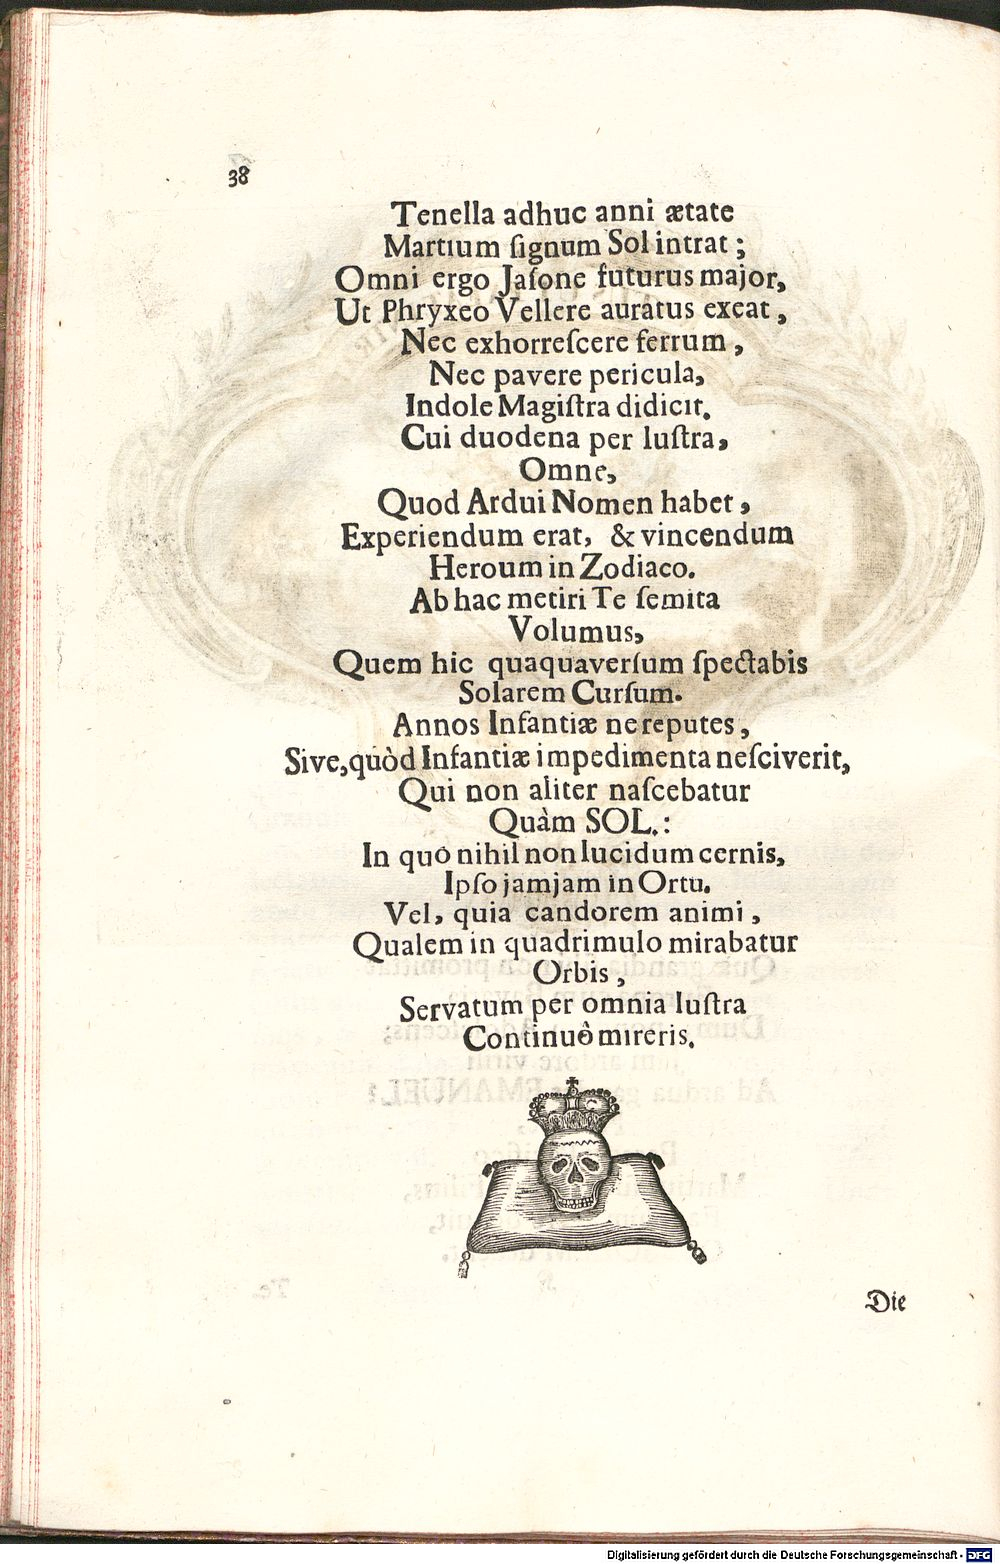 38
Tenella adhuc anni ætate
Martium ſignum Sol intrat ;
Omni ergo Jaſone futurus major,
Ut Phryxeo Vellere auratus exeat ,
Nec exhorreſcere ferrum ,
Nec pavere pericula,
Indole Magiſtra didicit.
Cui duodena per luſtra,
Omne,
Quod Ardui Nomen habet ,
Experiendum erat, & vincendum
Heroum in Zodiaco.
Ab hac metiri Te ſemita
Volumus,
Quem hic quaquaverſum ſpectabis
Solarem Curſum.
Annos Infantiæ ne reputes ,
Sive,quòd Infantiæ impedimenta neſciverit,
Qui non aliter naſcebatur
Quàm SOL.:
In quô nihil non lucidum cernis,
Ipſo jamjam in Ortu.
Vel, quia candorem animi ,
Qualem in quadrimulo mirabatur
Orbis ,
Servatum per omnia luſtra
Continuô mireris.
Die
Digitalisierung gefördert durch die Deutsche Forschungsgemeinschaft - DFG